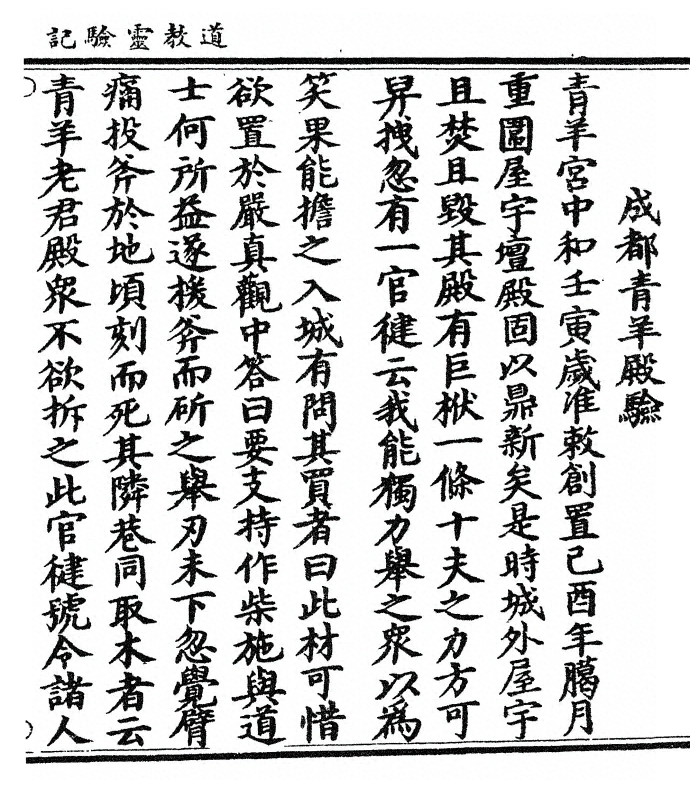 道教靈驗記
成都青羊殿驗
青羊宮中和壬寅歲准敕創置己酉年臈月
重圍屋宇壇殿固以鼎新矣是時城外屋宇
且焚且毀其殿有巨栿一條十夫之力方可
舁拽忽有一官健云我能獨力舉之眾以為
笑果能擔之入城有問其買者曰此材可惜
欲置於嚴真觀中答曰要支持作柴施與道
士何所益遂援斧而斫之舉刃未下忽覺臂
痛投斧於地頃刻而死其隣巷同取木者云
青羊老君殿眾不欲拆之此官健號令諸人